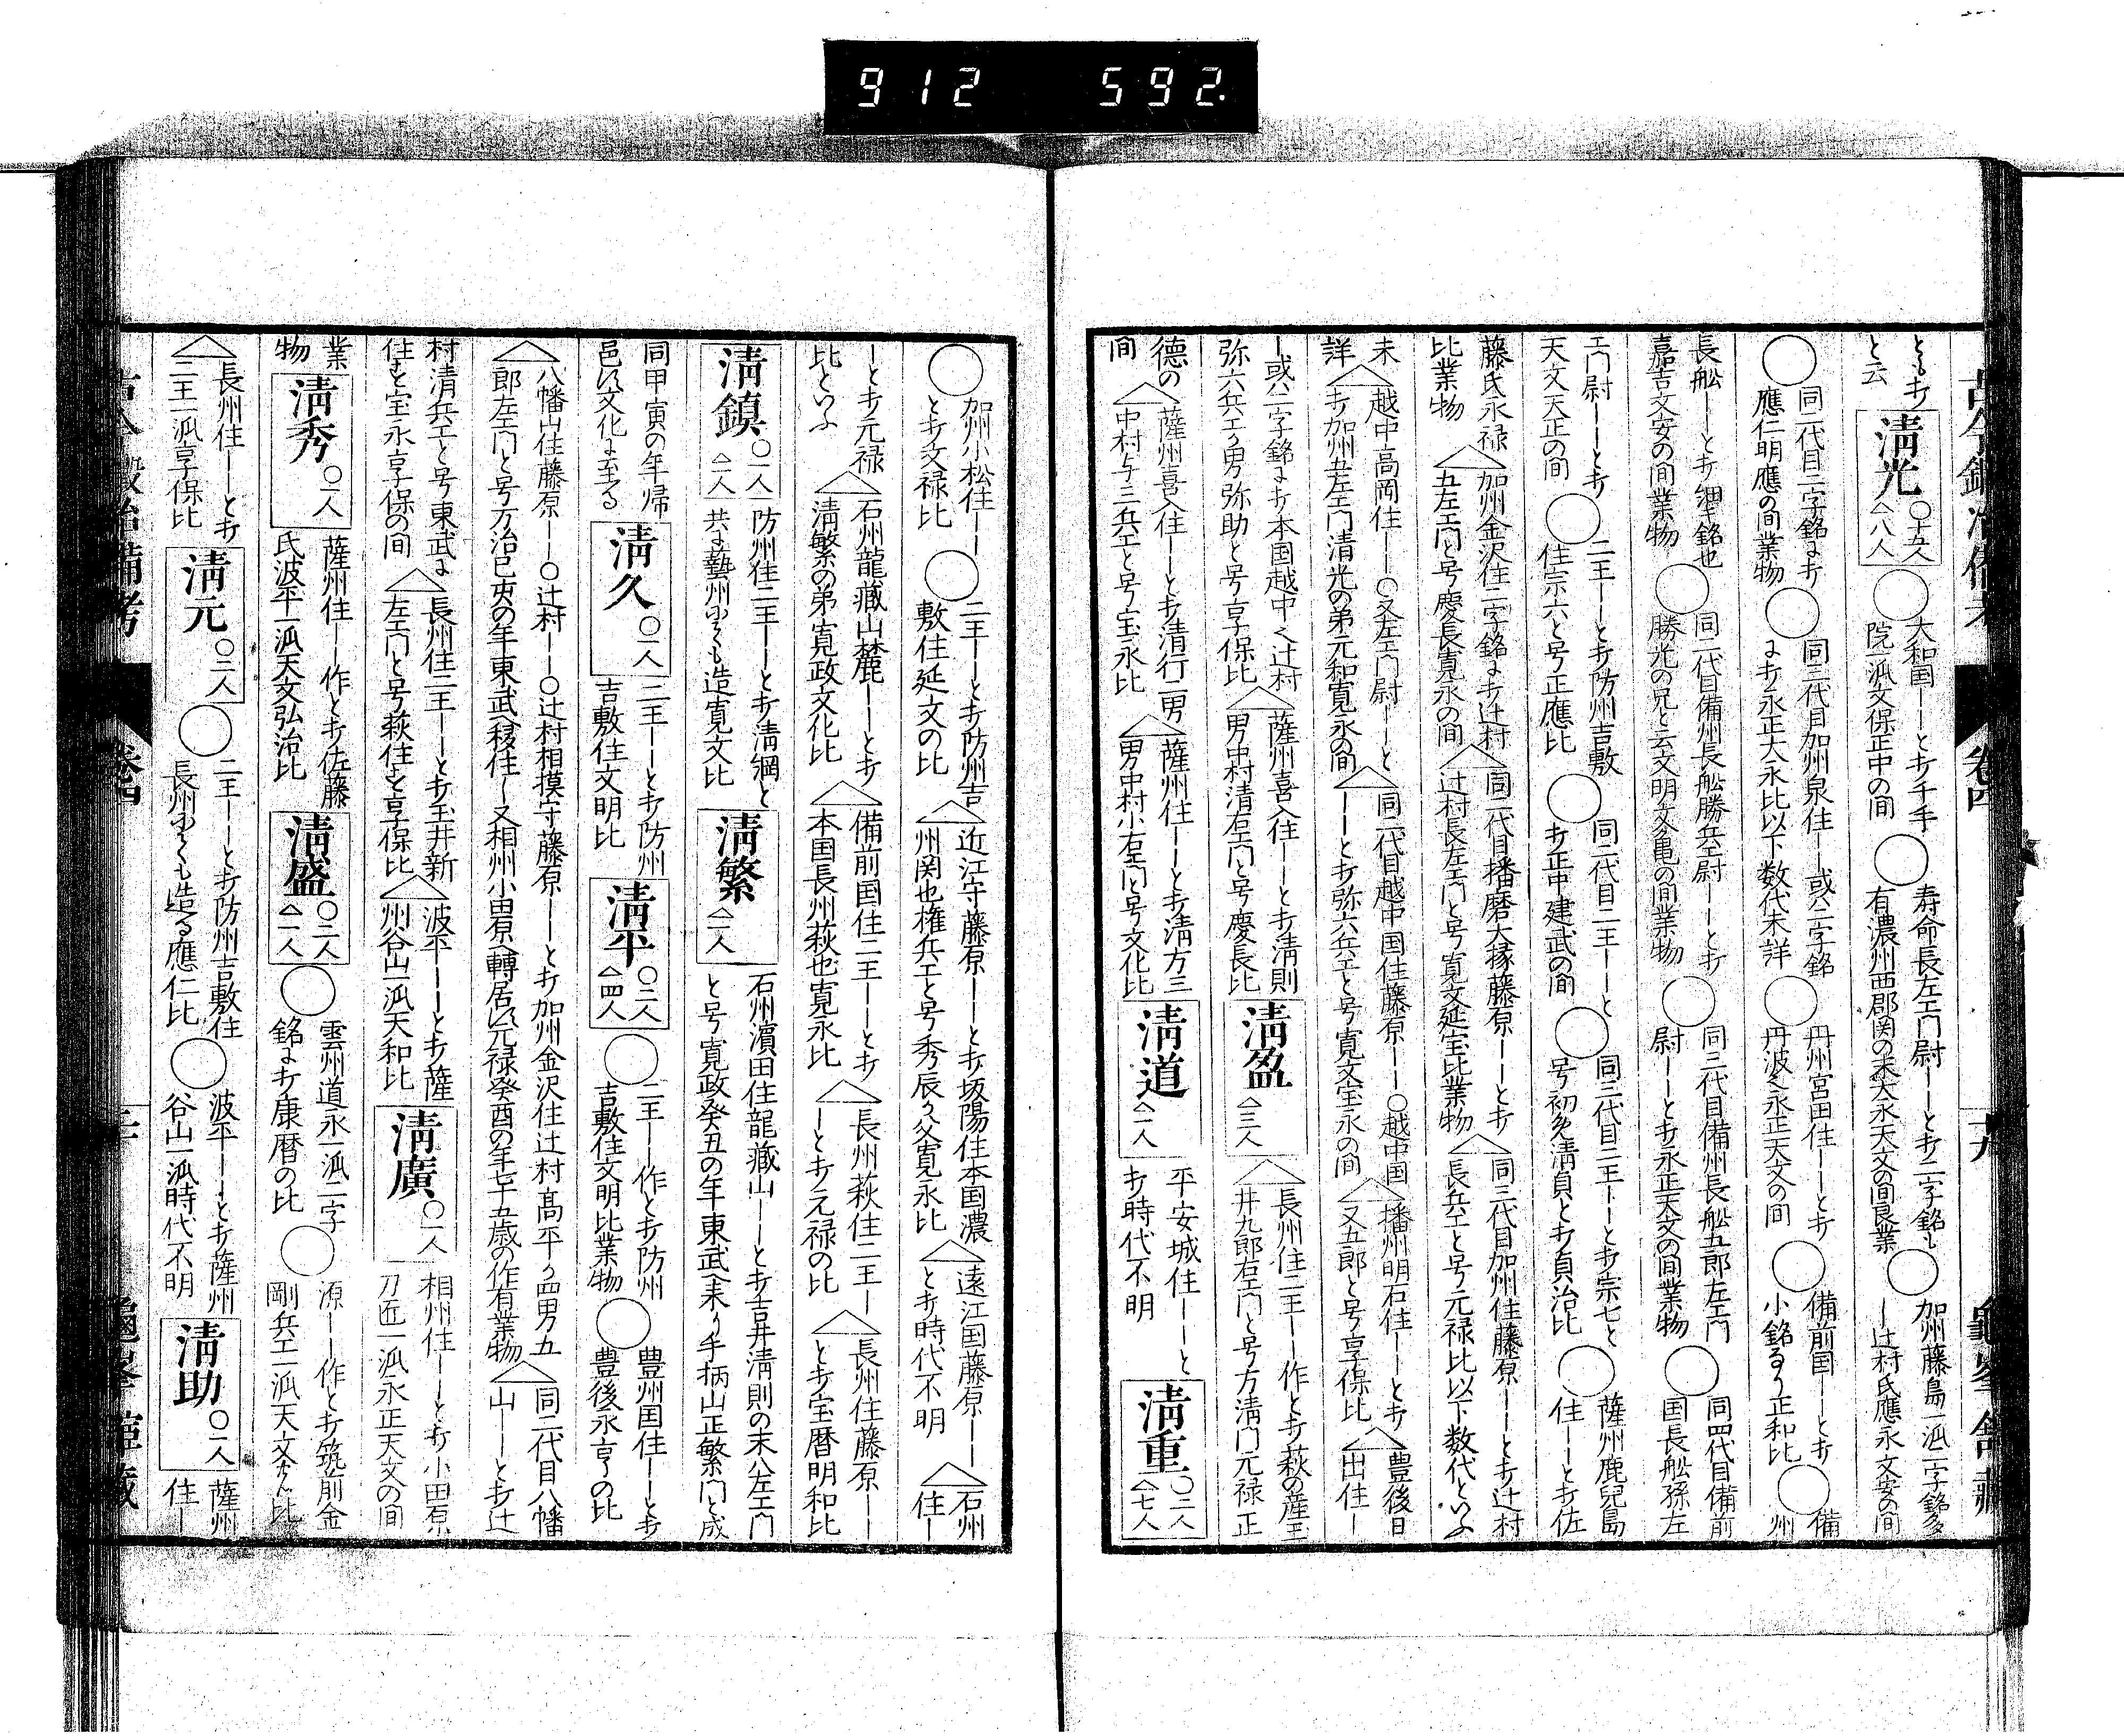 912 592.
古今鍛冶備考 卷四 十九 龜峯館藏
ともオと云
清光 〇十五人 △八人
〇大和国――とオ千手院一派文保正中の間
〇寿命長左エ門尉――とオ二字銘も有濃州西郡関の末大永天文の間良業
〇加州藤島一派二字銘多―辻村氏應永文安の間
〇同二代目二字銘にオ應仁明應の間業物
〇同三代目加州泉住――或ハ二字銘にオ永正大永比以下数代未詳
〇丹州宮田住――とオ丹波之永正天文の間
〇備前国――とオ小銘なり正和比
〇備州
長舩――とオ細銘也嘉吉文安の間業物
〇同二代目備州長舩勝兵エ尉――とオ勝光の兄と云文明文亀の間業物
〇同三代目備州長舩五郎左エ門尉――とオ永正天文の間業物
〇同四代目備前国長舩孫左
エ門尉――とオ天文天正の間
〇二王――とオ防州吉敷住宗六と号正應比
〇同二代目二王――とオ正中建武の間
〇同三代目二王――とオ宗七と号初め清貞とオ貞治比
〇薩州鹿兒島住――とオ佐
藤氏永禄比業物
△加州金沢住二字銘にオ辻村五左エ門と号慶長寛永の間
△同二代目播磨大掾藤原――とオ辻村長左エ門と号寛文延宝比業物
△同三代目加州住藤原――とオ辻村長兵エと号元禄比以下数代といふ
未詳
△越中高岡住――〇又左エ門尉――とオ加州五左エ門清光の弟元和寛永の間
△同二代目越中国住藤原――〇越中国――とオ弥六兵エと号寛文宝永の間
△播州明石住――とオ又五郎と号享保比
△豊後日出住―
―或ハ二字銘にオ本国越中之辻村弥六兵エ男弥助と号享保比
△薩州喜入住――とオ清則男中村清右エ門と号慶長比
清盈 △三人
△長州住二王――作とオ萩の産玉井九郎右エ門と号方清門元禄正
德の間
△薩州喜入住――とオ清行二男中村与三兵エと号宝永比
△薩州住――とオ清方三男中村小右エ門と号文化比
清道 △一人
平安城住――とオ時代不明
清重 〇二人 △七人
〇加州小松住――とオ文禄比
〇二王――とオ防州吉敷住延文の比
△近江守藤原――とオ坂陽住本国濃州関也権兵エと号秀辰か父寛永比
△遠江国藤原――とオ時代不明
△石州住―
―とオ元禄比といふ
△石州龍藏山麓――とオ清繁の弟寛政文化比
△備前国住二王――とオ本国長州萩也寛永比
△長州萩住二王――とオ元禄の比
△長州住藤原――とオ宝暦明和比
清鎮 〇一人 △一人
防州住二王――とオ清綱と共に藝州ニても造寛文比
清繁 △一人
石州濱田住龍藏山――とオ吉井清則の末八左エ門と号寛政癸丑の年東武へ来り手柄山正繁門と成
同甲寅の年帰邑以文化に至る
清久 〇一人
二王――とオ防州吉敷住文明比
清平 〇二人 △四人
〇二王――作とオ防州吉敷住文明比業物
〇豊州国住――とオ豊後永享の比
△八幡山住藤原――〇辻村――〇辻村相摸守藤原――とオ加州金沢住辻村高平か四男五郎左エ門と号万治己亥の年東武へ移住し又相州小田原へ轉居以元禄癸酉の年七十五歳の作有業物
△同二代目八幡山――とオ辻
村清兵エと号東武に住す宝永享保の間
△長州住二王――とオ玉井新左エ門と号萩住す享保比
△波平――とオ薩州谷山一派天和比
清廣 〇一人
相州住――とオ小田原刀匠一派永正天文の間
業物
清秀 〇一人
薩州住――作とオ佐藤氏波平一派天文弘治比
清盛 〇二人 △一人
〇雲州道永一派二字銘にオ康暦の比
〇源――作とオ筑前金剛兵エ一派天文永比
△長州住――とオ二王一派享保比
清元 〇二人
〇二王――とオ防州吉敷住長州ニても造る應仁比
〇波平――とオ薩州谷山一派時代不明
清助 〇一人
薩州住―
古今鍛冶備考 卷四 二十 龜峯館藏